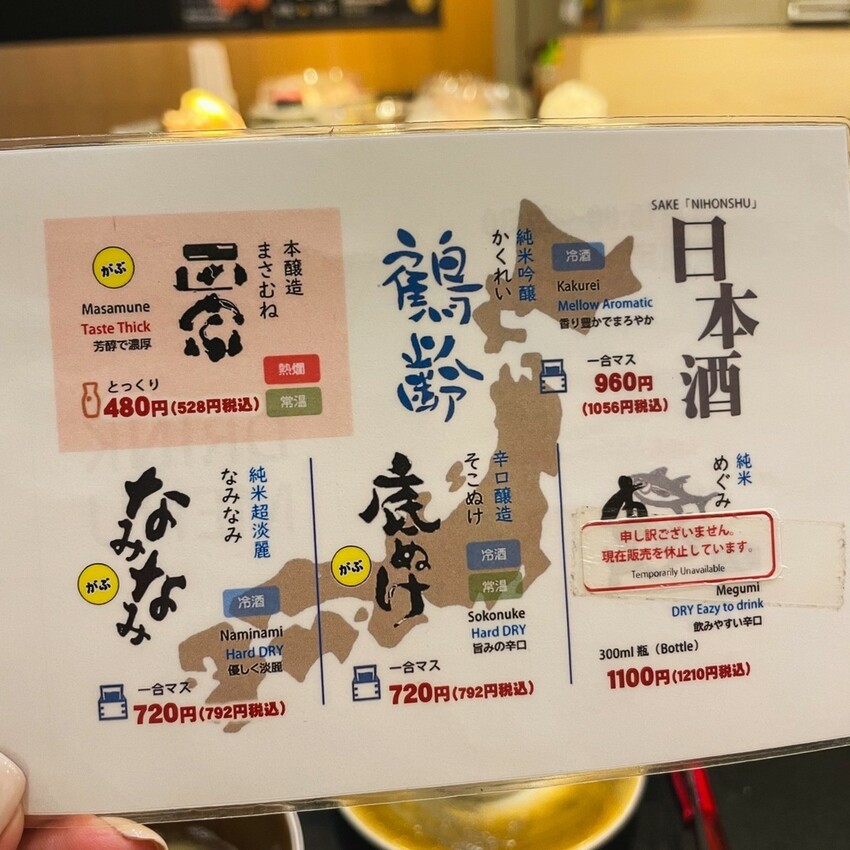 SAKE「NIHONSHU」
日本酒
冷酒
純米吟醸
かくれい
鶴齢
Kakurei
Mellow Aromatic
香り豊かでまろやか
一合マス
960円
(1056円税込)
本醸造
まさむね
正宗
がぶ
Masamune
Taste Thick
芳醇で濃厚
熱燗
常温
とっくり
480円(528円税込)
純米
めぐみ
申し訳ございません。
現在販売を休止しています。
Temporarily Unavailable
Megumi
DRY Eazy to drink
飲みやすい辛口
300ml 瓶（Bottle）
1100円(1210円税込)
辛口醸造
そこぬけ
底ぬけ
がぶ
冷酒
常温
Sokonuke
Hard DRY
旨みの辛口
一合マス
720円(792円税込)
純米超淡麗
なみなみ
なみなみ
がぶ
冷酒
Naminami
Hard DRY
優しく淡麗
一合マス
720円(792円税込)